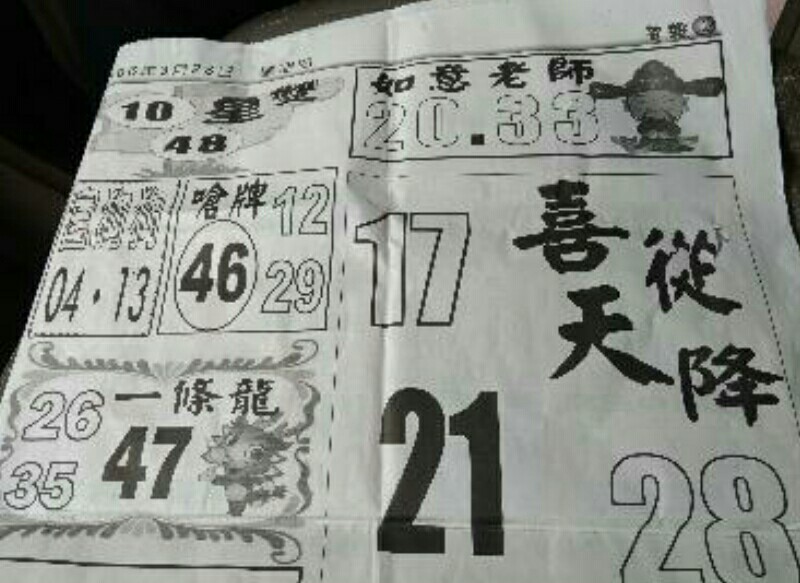 如意老師
20.33
10
48
嗆牌
12
46
29
04.13
一條龍
26
47
35
喜從天降
17
21
28